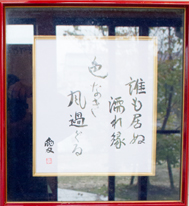 誰も居ぬ
濡れ縁
色なき
風過ぐる
愛